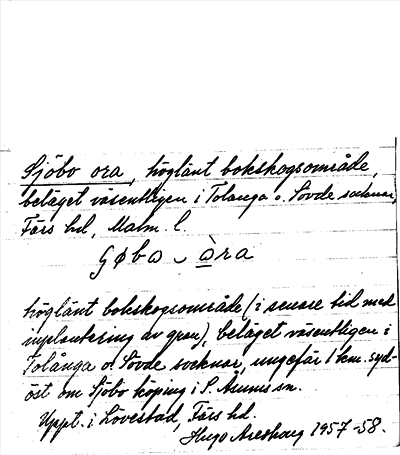 Sjöbo ora, höglänt bokskogsområde,
beläget väsentligen i Tolånga o. Sövde socknar,
Färs hd, Malm. l.
höglänt bokskogsområde (i senare tid med
inplantering av gran), beläget väsentligen i
Tolånga o. Sövde socknar, ungefär 1 km. syd-
öst om Sjöbo köping i S. Åsums sn.
Uppt. i Lövestad, Färs hd.
Hugo Areskoug 1957-58.